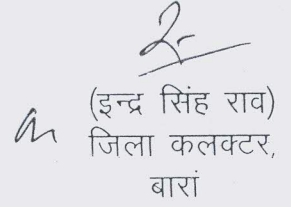 (इन्द्र सिंह राव)
जिला कलक्टर,
बारां